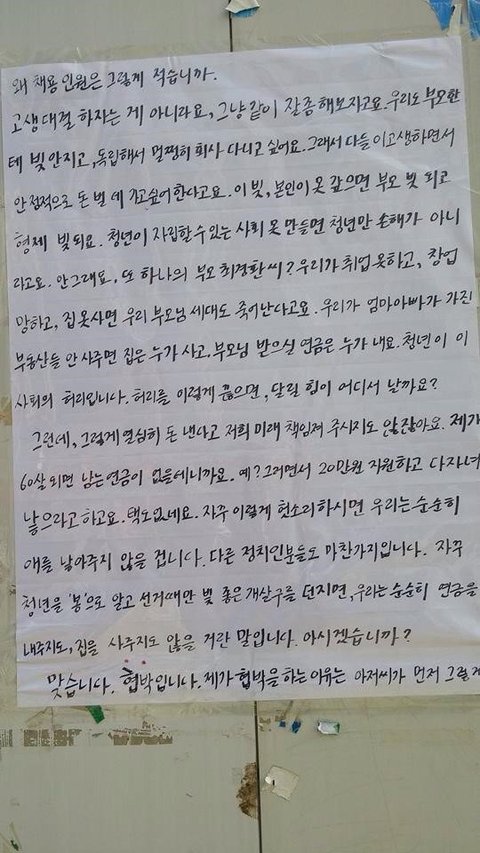 왜 채용 인원은 그렇게 적습니까.
고생 대절 하자는 게 아니라요, 그냥 같이 잘 좀 해보자고요. 우리도 부모한
테 빚 안지고, 독립해서 멀쩡히 회사 다니고 싶어요. 그래서 다들 이 고생하면서
안정적으로 돈 벌 데 가고 싶어한다고요. 이 빚, 본인이 못 갚으면 부모 빚 되고
형제 빚 되요. 청년이 자립할 수 있는 사회 못 만들면 청년만 손해가 아니
라고요. 안그래요, 또 하나의 부모 최경환 씨? 우리가 취업 못하고, 창업
망하고, 집 못사면 우리 부모님 세대도 죽어난다고요. 우리가 엄마아빠가 가진
부동산들 안 사주면 집은 누가 사고, 부모님 받으실 연금은 누가 내요. 청년이 이
사회의 허리입니다. 허리를 이렇게 끊으면, 달릴 힘이 어디서 날까요?
그런데, 그렇게 열심히 돈 낸다고 저희 미래 책임져 주시지도 않잖아요. 제가
60살 되면 남는 연금이 없을테니까요. 예? 그러면서 20만원 지원하고 다자녀
낳으라고 하고요. 택도 없네요. 자꾸 이렇게 헛소리 하시면 우리는 순순히
애를 낳아주지 않을 겁니다. 다른 정치인분들도 마찬가지입니다. 자꾸
청년을 '봉'으로 알고 선거때만 빛 좋은 개살구를 던지면, 우리는 순순히 연금을
내주지도, 집을 사주지도 않을 거란 말입니다. 아시겠습니까?
맞습니다. 협박입니다. 제가 협박을 하는 이유는 아저씨가 먼저 그렇게